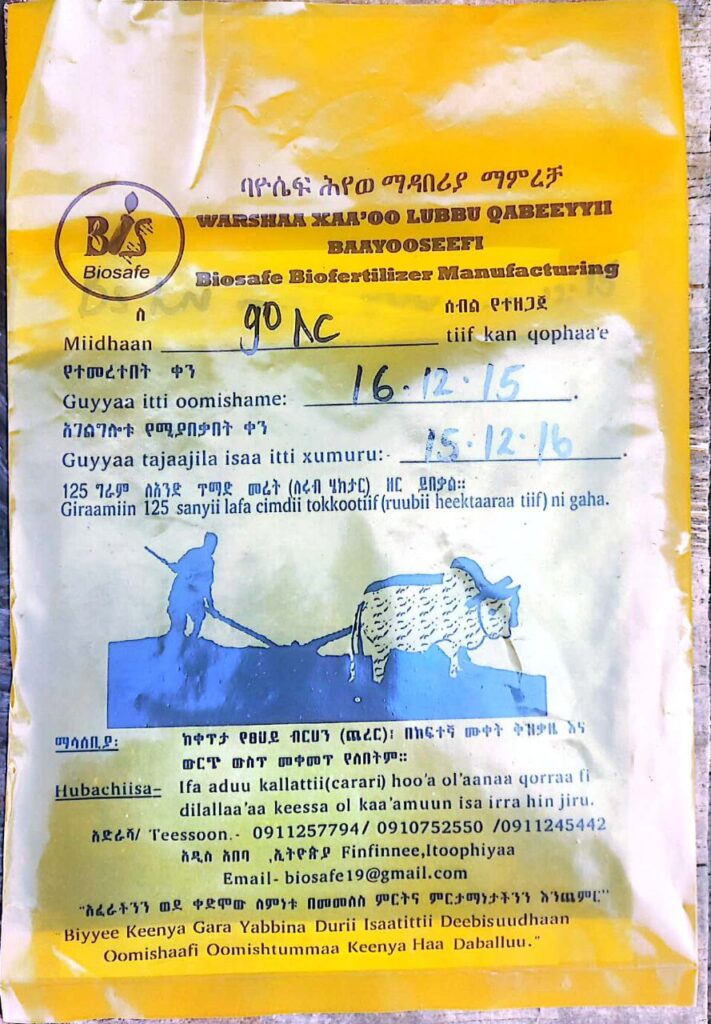 ባዮሴፍ ሕየወ ማዳበሪያ ማምረቻ
BIS
Biosafe
WARSHAA XAA'OO LUBBU QABEEYYII
BAAYOOSEEFI
Biosafe Biofertilizer Manufacturing
ለ ሰብል የተዘጋጀ
Miidhaan ምስር tiif kan qophaa'e
የተመረተበት ቀን
Guyyaa itti oomishame: 16.12.15.
አገልግሎቱ የሚያበቃበት ቀን
Guyyaa tajaajila isaa itti xumuru:- 15.12.16.
125 ግራም ለአንድ ጥማድ መሬት (ለሩብ ሄክታር) ዘር ይበቃል።
Giraamiin 125 sanyii lafa cimdii tokkootiif (ruubii heektaaraa tiif) ni gaha.
ማሳሰቢያ: ከቀጥታ የፀሀይ ብርሀን (ጨረር)፣ በከፍተኛ ሙቀት ቅዝቃዜ እና
ውርጭ ውስጥ መቀመጥ የለበትም።
Hubachiisa- Ifa aduu kallattii(carari) hoo'a ol'aanaa qorraa fi
dilallaa'aa keessa ol kaa'amuun isa irra hin jiru.
አድራሻ/ Teessoon.- 0911257794/ 0910752550 /0911245442
አዲስ አበባ ,ኢትዮጵያ Finfinnee,Itoophiyaa
Email- biosafe19@gmail.com
"አፈራችንን ወደ ቀድሞው ለምነቱ በመመለስ ምርትና ምርታማነታችንን እንጨምር"
"Biyyee Keenya Gara Yabbina Durii Isaatittii Deebisuudhaan
Oomishaafi Oomishtummaa Keenya Haa Daballuu."